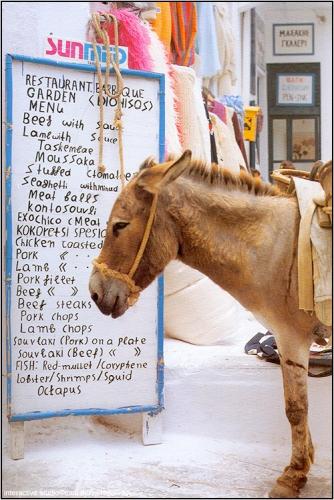 SUNMED
RESTAURANT BARBEQUE
GARDEN <DIOHISOS>
MENU
Beef with sauce
Lamb with sauce
Taskembae
Moussaka
Stuffed ctomatoe
Spaghetti with minud
Meat balls
kontosouvli
Exochico (Meat
KOKORETSI SPESIC
Chicken roasted
Pork « ··
Lamb « ··
Pork fillet
Beef « »
Beef steaks
Pork chops
Lamb chops
Souvlaki (Pork) on a plate
Souvlaki (Beef) « »
FISH: Red-mullet/Coryphene
lobster/Shrimps/Squid
Octapus
ΜΑΣΚΛΗΙ
ΓΚΑΛΕΡΙ